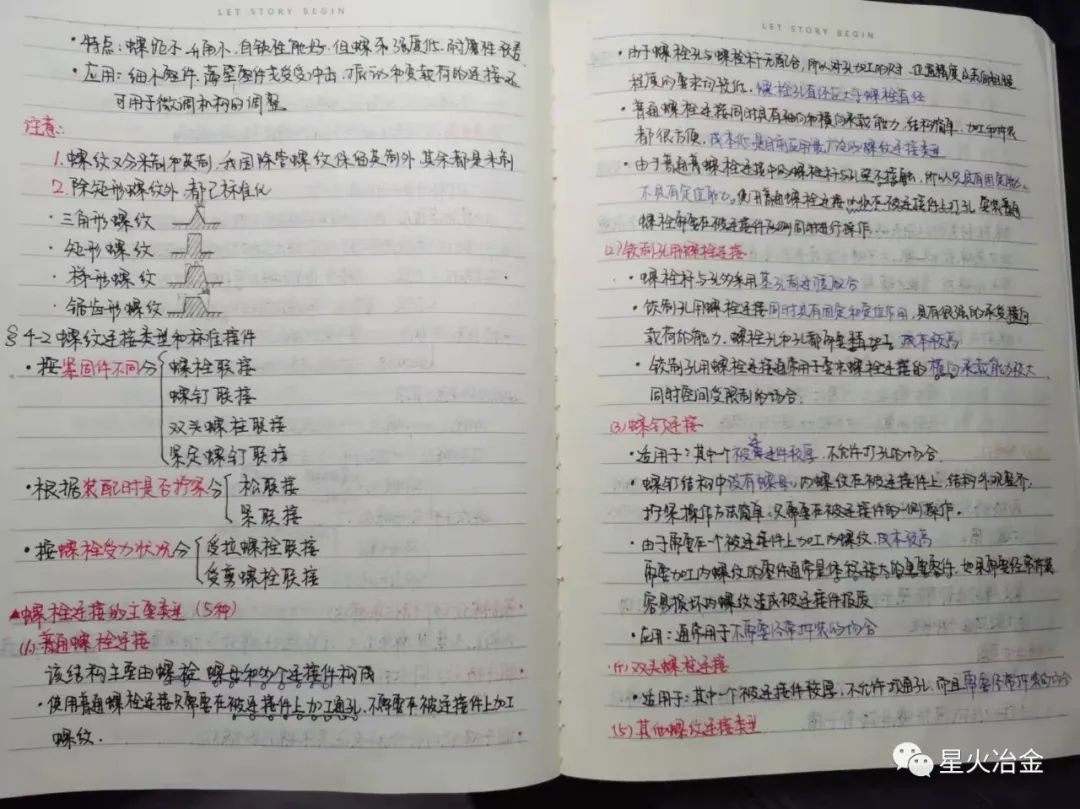 LET STORY BEGIN
·特点：螺距小、升角小、自锁性能好，但螺牙强度低、耐磨性较差
·应用：细小零件、薄壁管件或受冲击、振动和变载荷的连接，还
可用于微调机构的调整
注意：
1.螺纹又分米制和英制，我国除管螺纹保留英制外，其余都是米制
2.除矩形螺纹外，都已标准化
·三角形螺纹
·矩形螺纹
·梯形螺纹
·锯齿形螺纹
§4-2螺纹连接类型和标准接件
·按紧固件不同分
螺栓联接
螺钉联接
双头螺柱联接
紧定螺钉联接
·根据装配时是否拧紧分
松联接
紧联接
·按螺栓受力状况分
受拉螺栓联接
受剪螺栓联接
▲螺栓连接的主要类型（5种）
(1)普通螺栓连接
该结构主要由螺栓、螺母和多个连接件构成
·使用普通螺栓连接只需要在被连接件上加工通孔，不需要在被连接件上加工
螺纹.
LET STORY BEGIN
·由于螺栓孔与螺栓杆无配合，所以对孔加工的尺寸、位置精度及表面粗糙
程度的要求均较低，螺栓孔直径应大于螺栓直径
·普通螺栓连接同时具有轴向和横向承载能力，结构简单、加工和拆装
都很方便，成本低，是目前应用最广泛的螺纹连接类型
·由于普通螺栓连接中的螺栓杆与孔壁不接触，所以只具有固定能力，
不具有定位能力。使用普通螺栓连接必须在被连接件上打孔，安装普通
螺栓需要在被连接件两侧同时进行操作
(2)铰制孔用螺栓连接
·螺栓杆与孔多采用基孔制过渡配合
·铰制孔用螺栓连接同时具有固定和定位作用，具有很强的承受横向
载荷的能力，螺栓孔和孔都需要精加工，成本较高
·铰制孔用螺栓连接通常用于要求螺栓连接的横向承载能力较大
同时空间受限制的场合.
(3)螺钉连接
·适用于：其中一个被连接件较厚，不允许打孔的场合
·螺钉结构中没有螺母，内螺纹在被连接件上，结构外观整齐，
拧紧操作方法简单，只需要在被连接件的一侧操作。
·由于需要在一个被连接件上加工内螺纹，成本较高
需要加工内螺纹的零件通常是体积较大的重要零件，如果需要经常拆装
容易损坏内螺纹造成被连接件报废
·应用：通常用于不需要经常拆装的场合
(4)双头螺柱连接
·适用于：其中一个被连接件较厚，不允许打通孔，而且需要经常拆装的场合
(5)其他螺纹连接类型
星火冶金